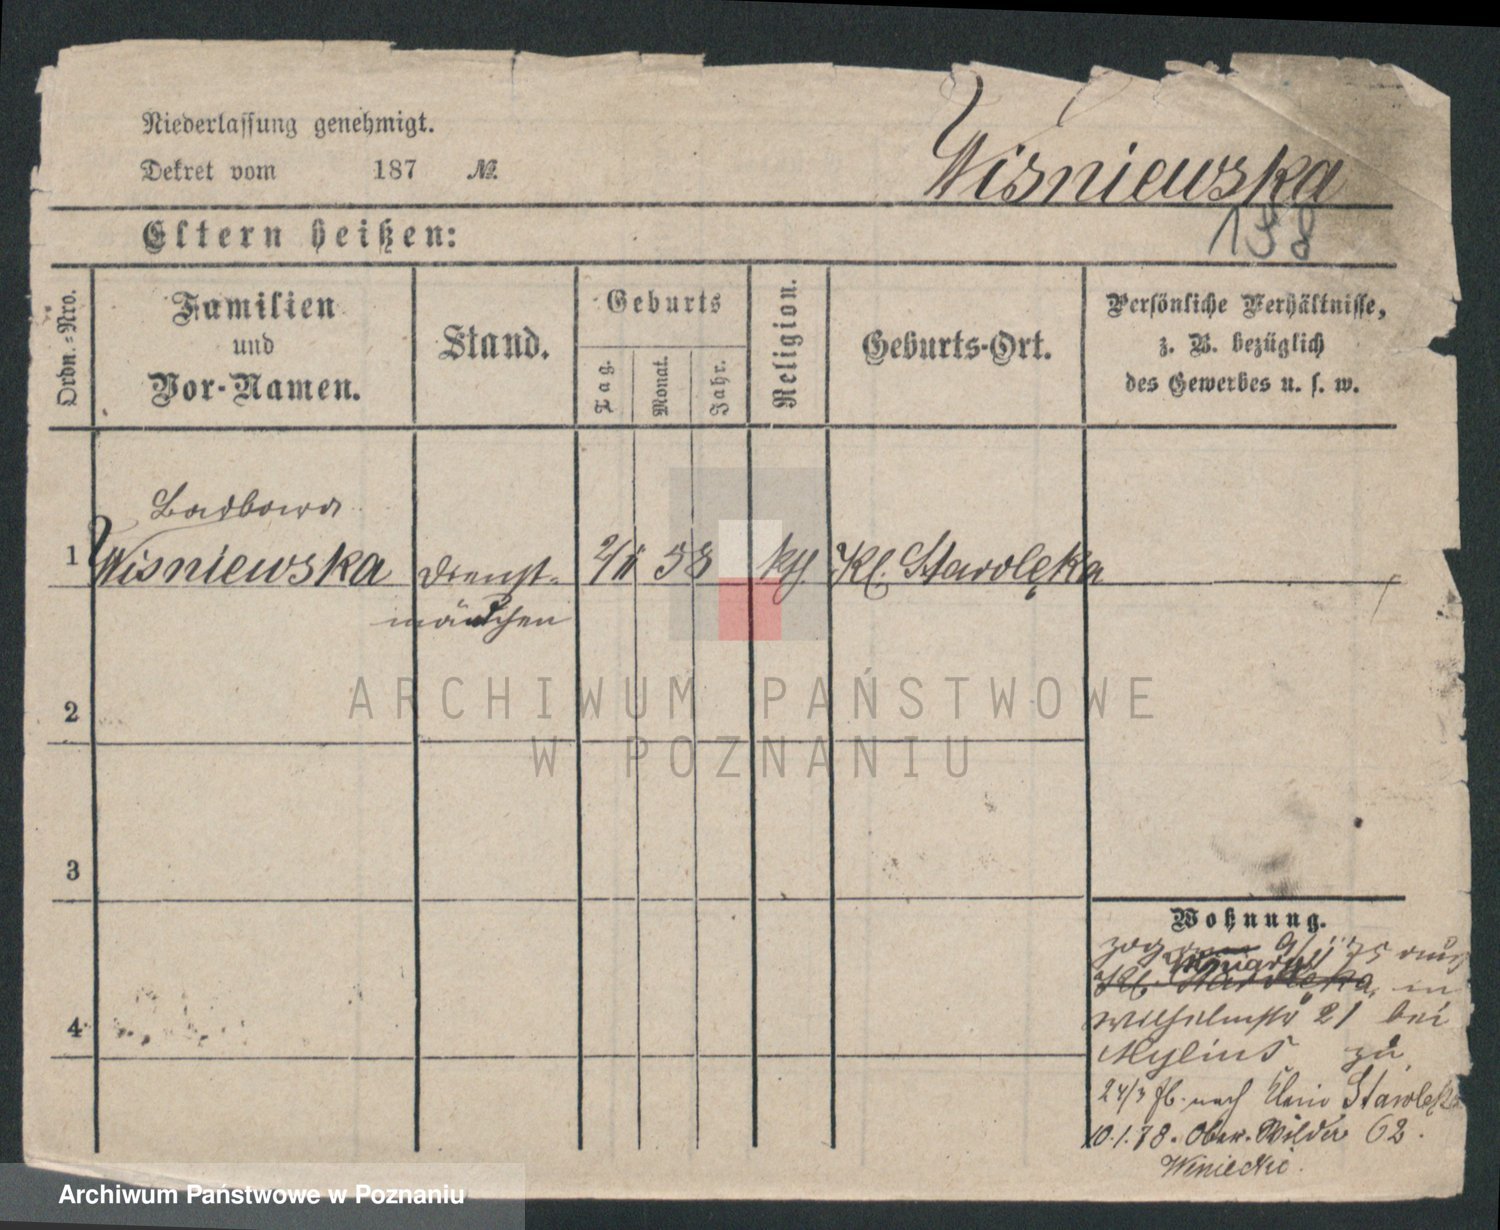 Niederlassung genehmigt.
Dekret vom 187 №.
Wiśniewska
158
Eltern heißen:
Ordn.-Nro.
Familien
und
Vor-Namen.
Stand.
Geburts
Tag.
Monat.
Jahr.
Religion.
Geburts-Ort.
Persönliche Verhältnisse,
z. B. bezüglich
des Gewerbes u. s. w.
Barbara
1 Wiśniewska Dienst- 58 Kl. Starolęka
mädchen
2
3
4
Wohnung.
75 aus
Kl. Starolęka, in
Wilhelmstr 21 bei
Mylius zu
24/3 nach Klein Starolęka
10.1.78. Ober-Wilda 62.
Winiecki.
ARCHIWUM PAŃSTWOWE
W POZNANIU
Archiwum Państwowe w Poznaniu